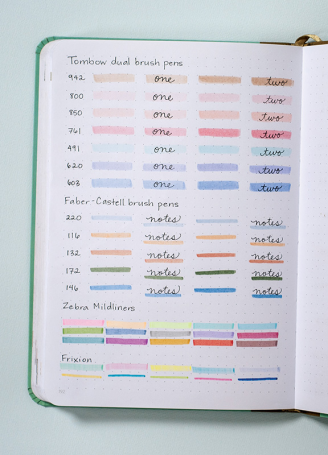 Tombow dual brush pens
942 one two
800 one two
850 one two
761 one two
491 one two
620 one two
603 one two
Faber-Castell brush pens
220 notes notes
116 notes notes
132 notes notes
172 notes notes
146 notes notes
Zebra Mildliners
Frixion